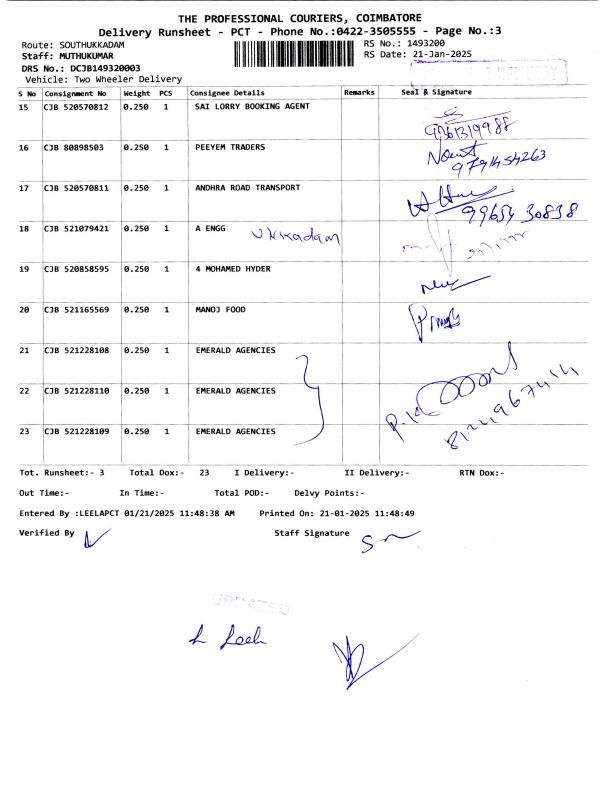 THE PROFESSIONAL COURIERS, COIMBATORE
Delivery Runsheet - PCT - Phone No.:0422-3505555 - Page No.:3
Route: SOUTHUKKADAM
RS No.: 1493200
Staff: MUTHUKUMAR
RS Date: 21-Jan-2025
DRS No.: DCJB149320003
Vehicle: Two Wheeler Delivery
S No Consignment No Weight PCS Consignee Details Remarks Seal & Signature
15 CJB 520570812 0.250 1 SAI LORRY BOOKING AGENT
16 CJB 80898503 0.250 1 PEEYEM TRADERS
9791454263
17 CJB 520570811 0.250 1 ANDHRA ROAD TRANSPORT
99654 30838
18 CJB 521079421 0.250 1 A ENGG Ukkadam
19 CJB 520858595 0.250 1 4 MOHAMED HYDER
20 CJB 521165569 0.250 1 MANOJ FOOD
21 CJB 521228108 0.250 1 EMERALD AGENCIES
22 CJB 521228110 0.250 1 EMERALD AGENCIES
23 CJB 521228109 0.250 1 EMERALD AGENCIES
Tot. Runsheet:- 3 Total Dox:- 23 I Delivery:- II Delivery:- RTN Dox:-
Out Time:- In Time:- Total POD:- Delvy Points:-
Entered By :LEELAPCT 01/21/2025 11:48:38 AM Printed On: 21-01-2025 11:48:49
Verified By Staff Signature
UPDATED